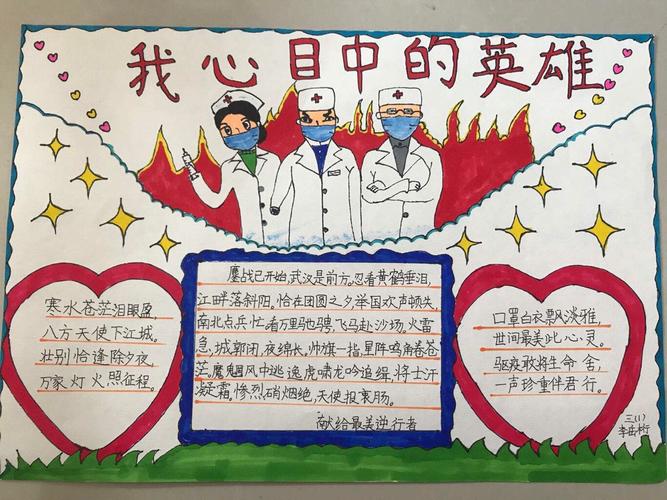 我心目中的英雄
寒水苍茫泪眼盈,
八方天使下江城。
壮别恰逢除夕夜,
万家灯火照征程。
鏖战已开始,武汉是前方。忍看黄鹤垂泪,
江畔落斜阳。恰在团圆之夕,举国欢声顿失,
南北点兵忙。看万里驰骋,飞马赴沙场,火雷
急,城郭闭,夜绵长。帅旗一指,星阵鸣角春苍
茫。魔魍风中逃逸,虎啸龙吟追缉,将士汗
凝霜,惨烈硝烟绝,天使报衷肠。
献给最美逆行者
口罩白衣飘淡雅,
世间最美此心灵。
驱疫敢将生命舍,
一声珍重伴君行。
三(1)